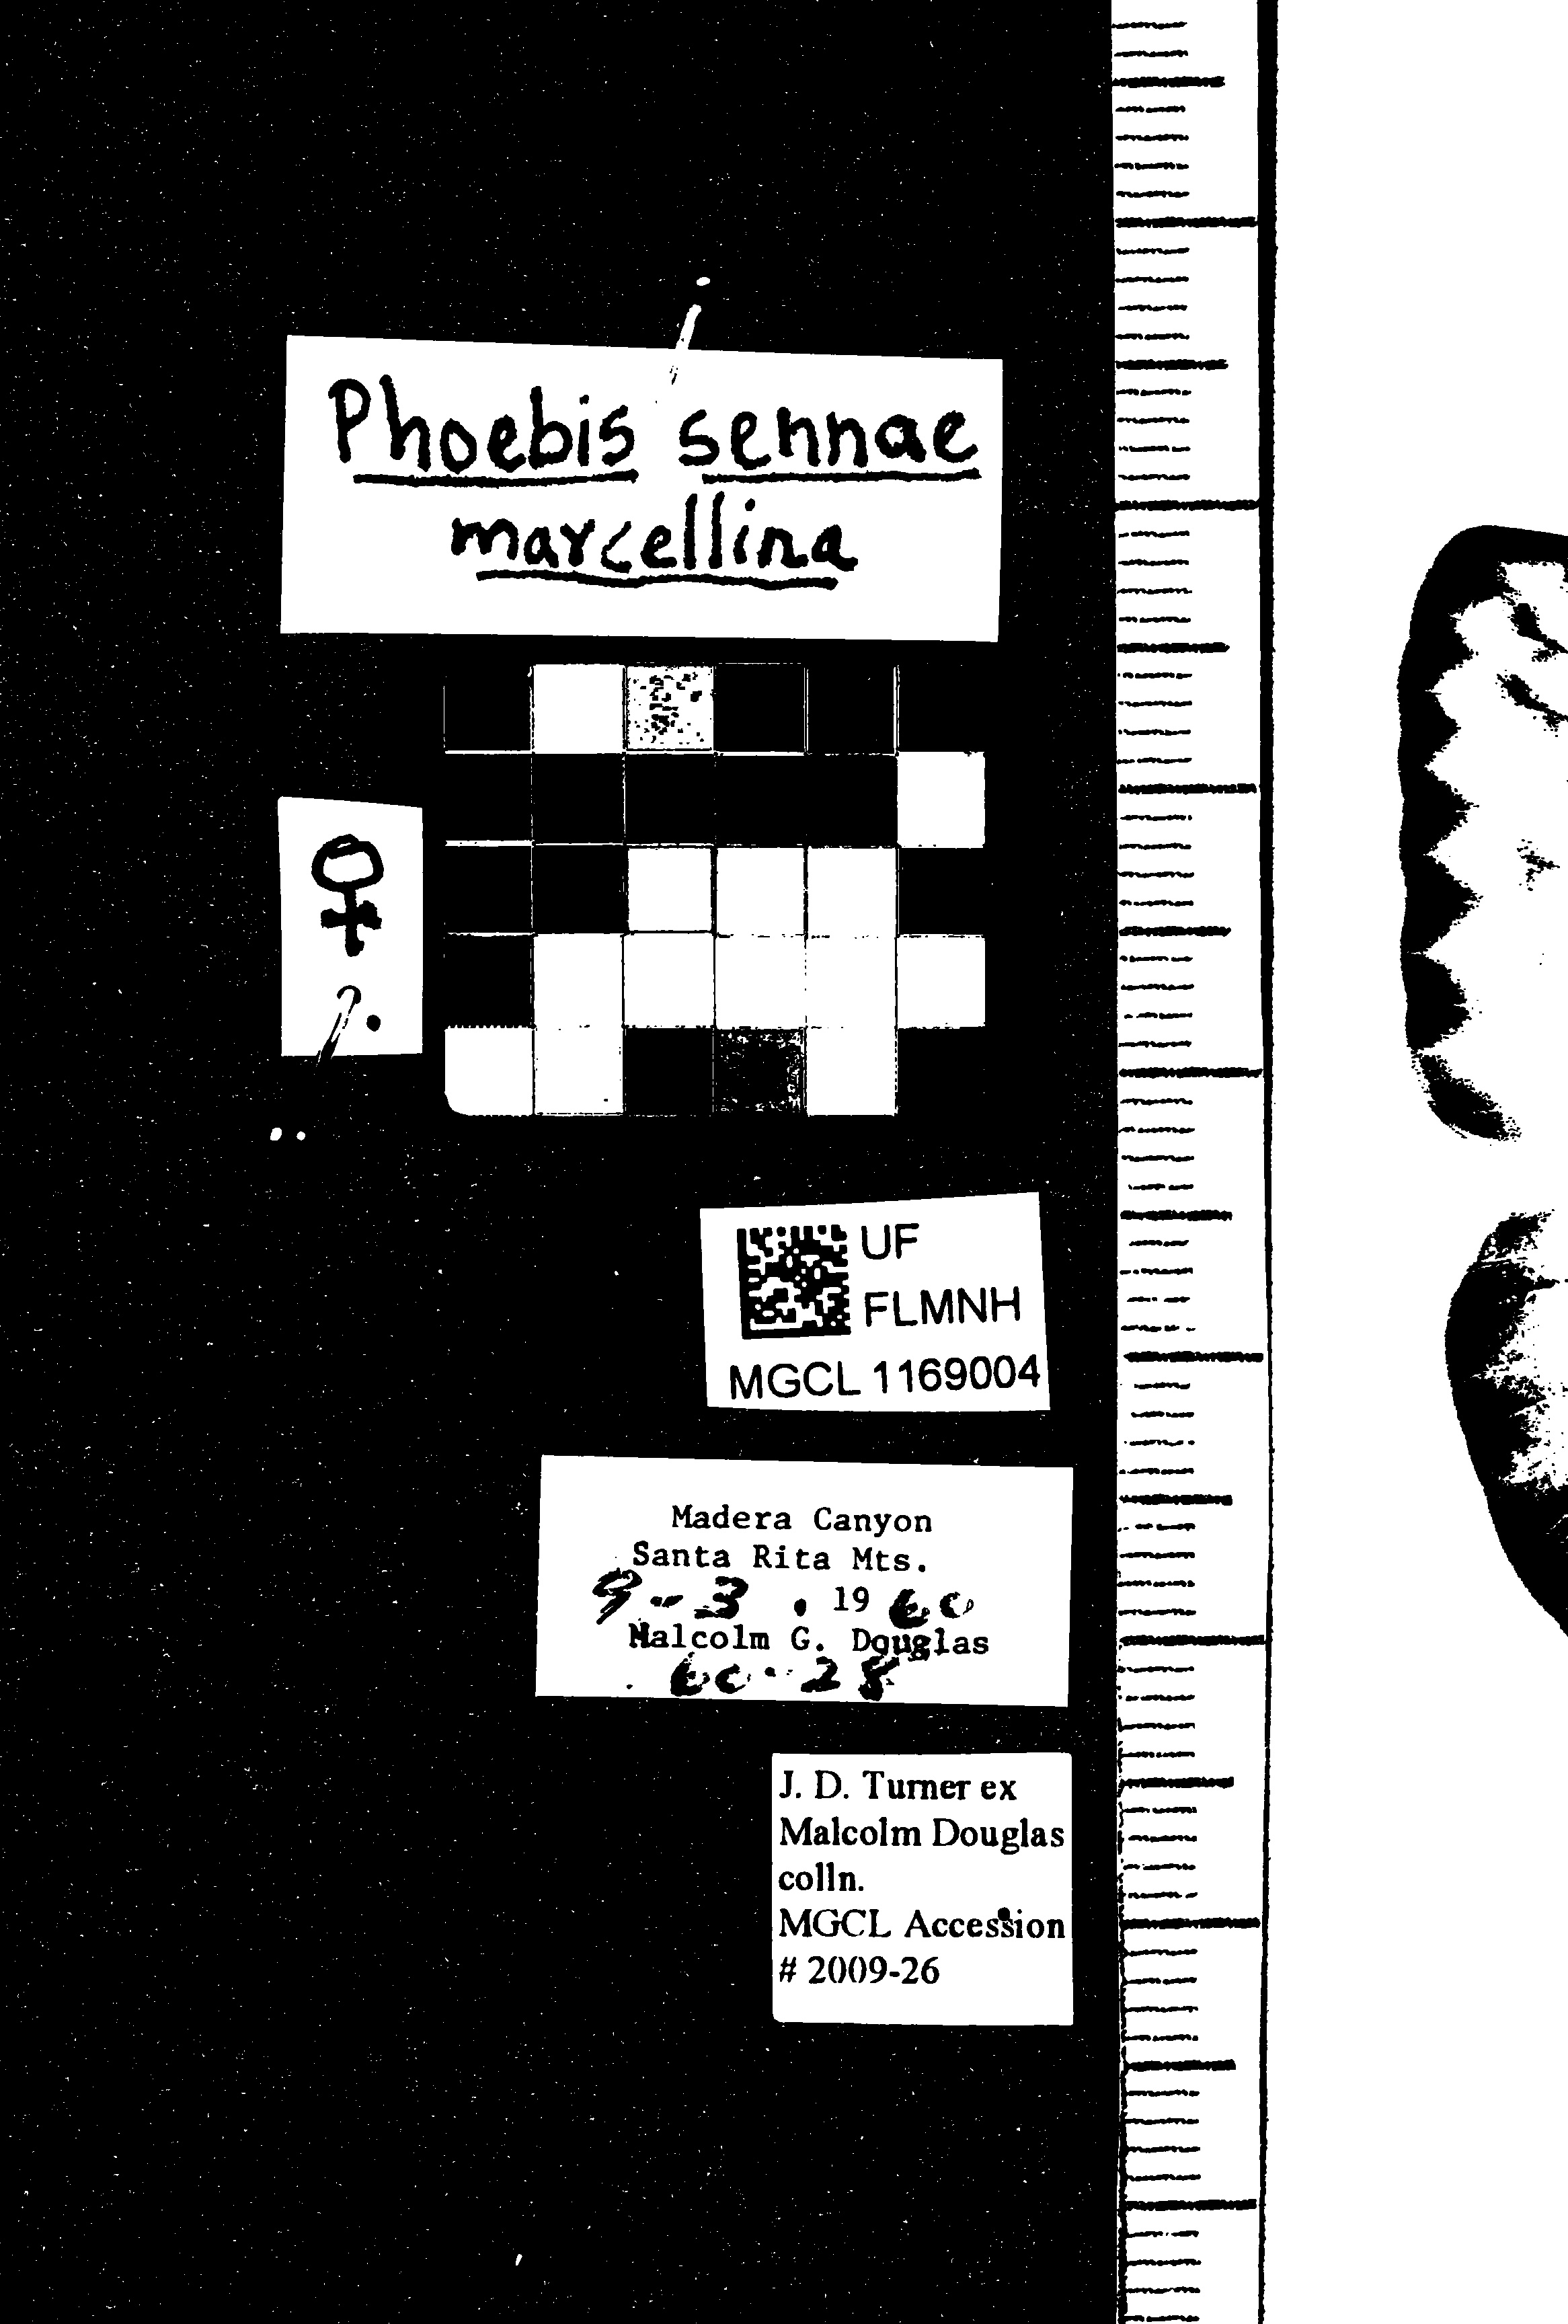 Phoebis sennae
marcellina
♀
UF
FLMNH
MGCL 1169004
Madera Canyon
Santa Rita Mts.
9-3 . 1960
Malcolm G. Douglas
60.28
J. D. Turner ex
Malcolm Douglas
colln.
MGCL Accession
# 2009-26